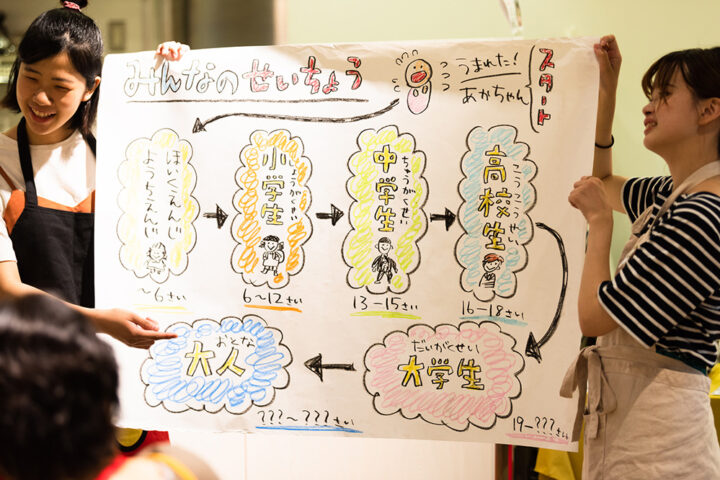 みんなのせいちょう
うまれた！
あかちゃん
スタート
ほいくえんじ
ようちえんじ
～6さい
小学生
しょうがくせい
6～12さい
中学生
ちゅうがくせい
13－15さい
高校生
こうこうせい
16－18さい
だいがくせい
大学生
19－???さい
おとな
大人
???～???さい